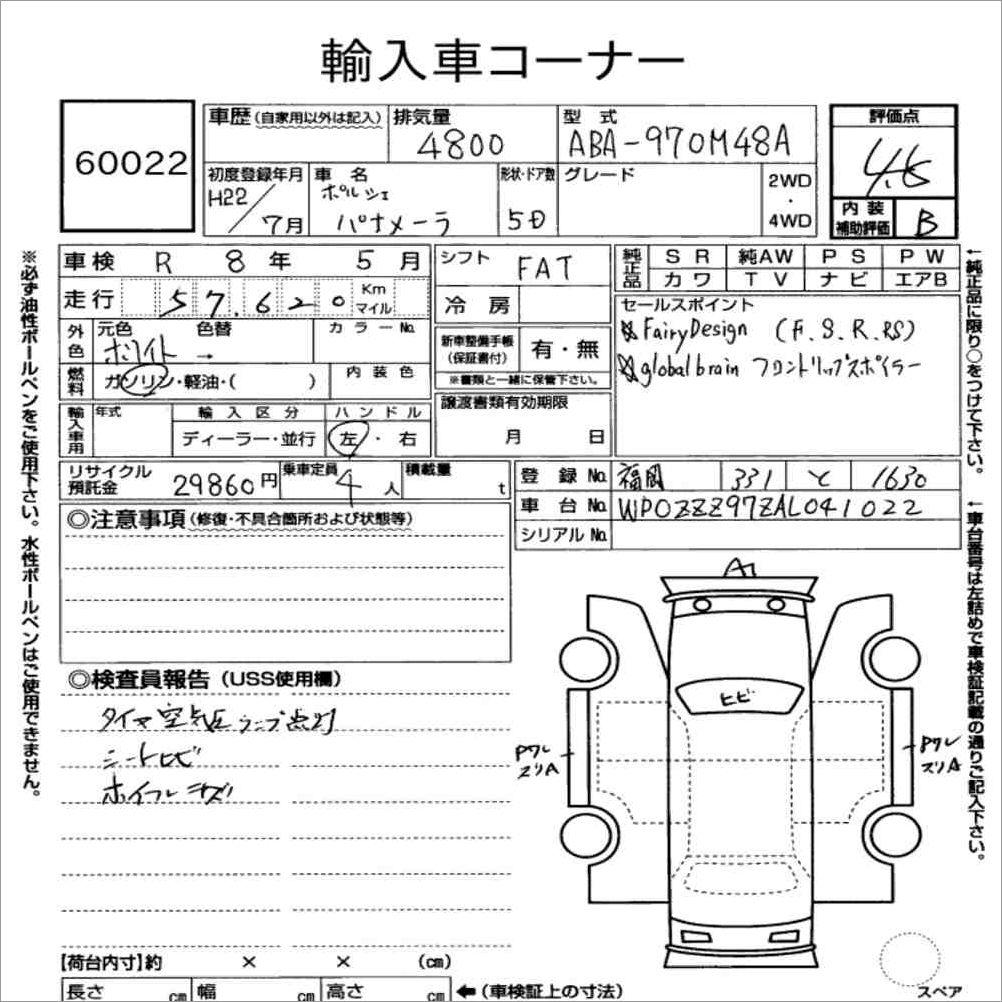 輸入車コーナー
60022
車歴 (自家用以外は記入)
排気量
4800
型式
ABA-970M48A
評価点
4.5
初度登録年月
H22/7月
車名
ポルシェ
パナメーラ
形状・ドア数
5D
グレード
2WD
・
4WD
内装
補助評価
B
車検 R 8年 5月
走行 57,620 Km マイル
外色
元色
ホワイト
色替
→
カラーNo.
燃料
ガソリン・軽油・( )
内装色
輸入車用
年式
輸入区分
ディーラー・並行
ハンドル
左・右
シフト
FAT
冷房
新車整備手帳
(保証書付)
有・無
※書類と一緒に保管下さい。
譲渡書類有効期限
月 日
純正品
SR 純AW PS PW
カワ TV ナビ エアB
セールスポイント
FairyDesign (F.S.R.RS)
globalbrain フロントリップスポイラー
リサイクル
預託金
29860円
乗車定員
4人
積載量
t
登録No. 福岡 331 と 1630
車台No. WP0ZZZ97ZAL041022
シリアルNo.
◎注意事項(修復・不具合箇所および状態等)
◎検査員報告(USS使用欄)
タイヤ空気圧ランプ点灯
シートヒビ
ホイールキズ
A1
ヒビ
Pワレ
スリA
Pワレ
スリA
スペア
【荷台内寸】約 × × (cm)
長さ cm 幅 cm 高さ cm ←(車検証上の寸法)
※必ず油性ボールペンをご使用下さい。水性ボールペンはご使用できません。
←純正品に限り○をつけて下さい。
←車台番号は左詰めで車検証記載の通りご記入下さい。